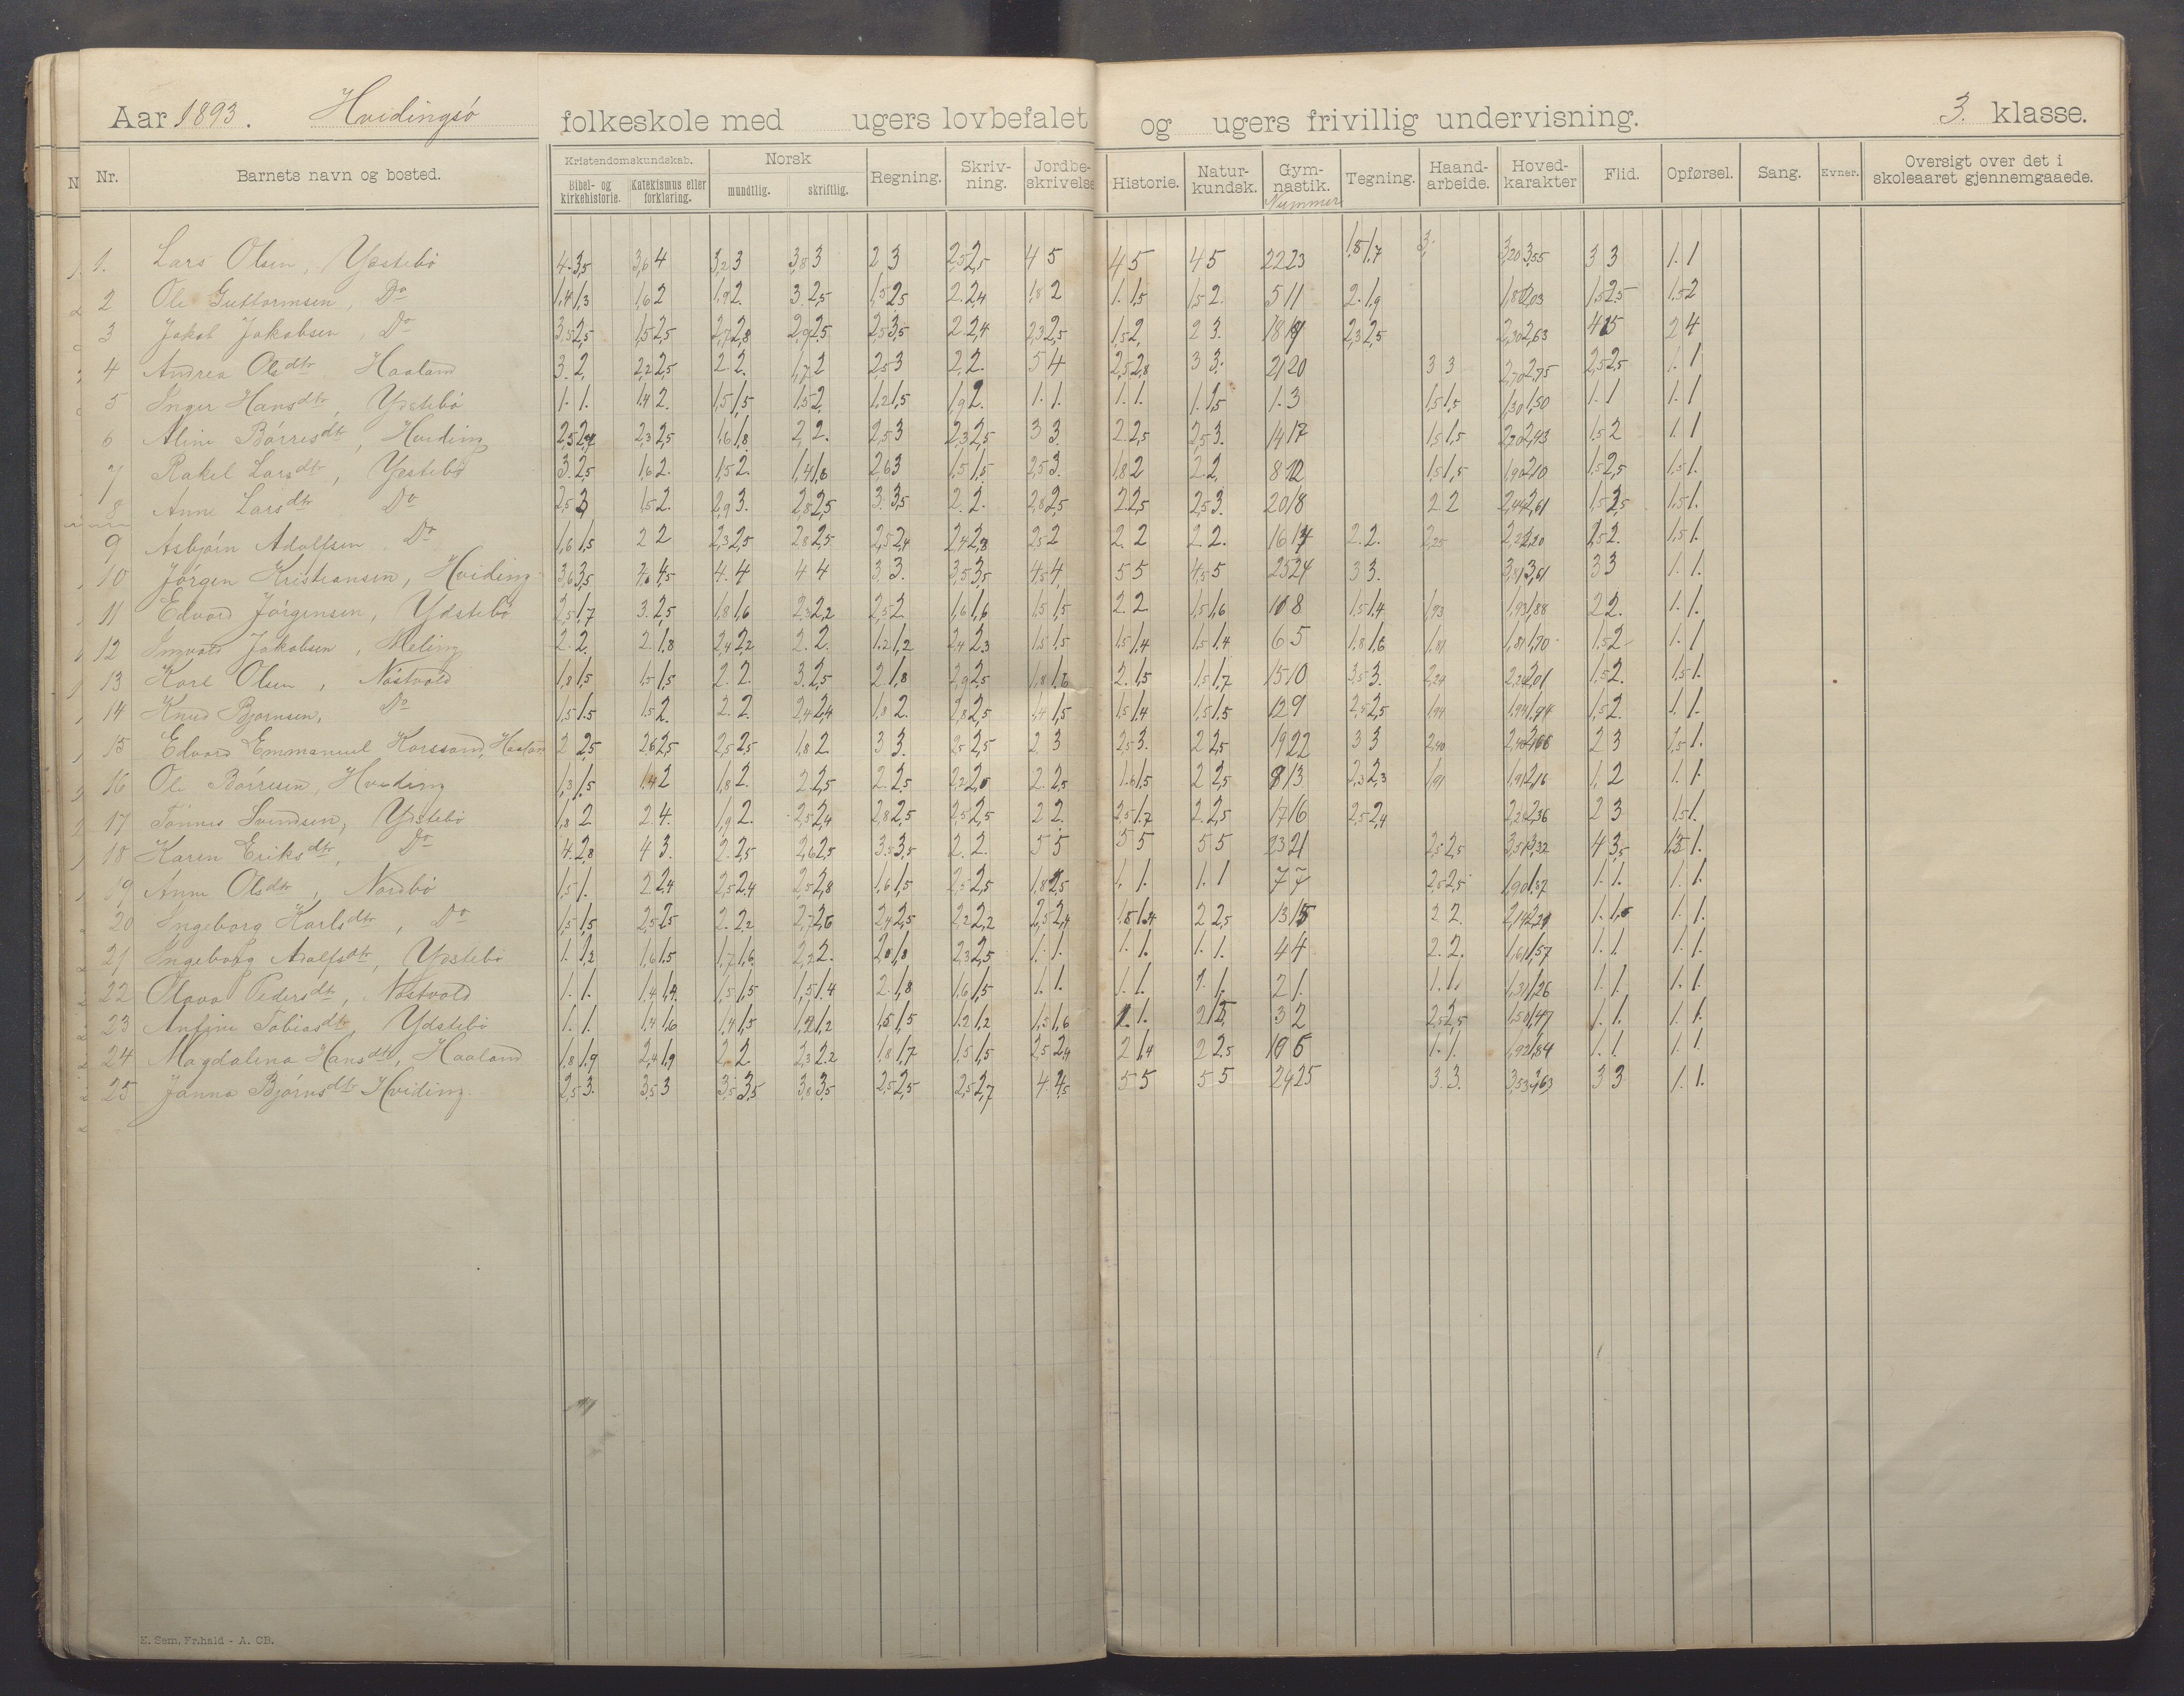 Aar 1893. Hvidingsö folkeskole med ugers lovbefalet og ugers frivillig undervisning. 3. klasse.
Nr. Barnets navn og bosted. Kristendomskundskab. Bibel- og kirkehistorie. Katekismus eller forklaring. Norsk mundtlig. skriftlig. Regning. Skriv-ning. Jordbe-skrivelse Historie. Natur-kundsk. Gym-nastik. Nummer Tegning. Haand-arbeide. Hoved-karakter Flid. Opførsel. Sang. Evner. Oversigt over det i skoleaaret gjennemgaaede.
1. Lars Olsen, Ydstebö 4 3,5 3,6 4 3,2 3 3,8 3 2 3 2,5 2,5 4 5 4 5 4 5 22 23 1,8 1,7 3. 3,20 3,55 3 3 1. 1
2 Ole Guttormsen, Do 1,4 1,3 1,6 2 1,9 2. 3. 2,5 1,5 2,5 2. 2,4 1,8 2 1. 1,5 1,5 2. 5 11 2. 1,9 2,03 1,5 2,5 1,5 2
3 Jakob Jakobsen, Do 3,5 2,5 1,5 2,5 2,7 2,8 2,9 2,5 2,5 3,5 2. 2,4 2,3 2,5 1,5 2. 2 3. 18 2,3 2,5 2,30 2,63 2 4
4 Andrea Olsdtr Haaland 3. 2. 2,2 2,5 2. 2. 1,7 2 2,5 3 2. 2. 5 4 2,5 2,8 3 3. 21 20 3 3 2,70 2,75 2,5 2,5 1. 1
5 Inger Hansdtr, Ydstebö 1. 1. 1,4 2. 1,5 1,5 1,5 2. 1,2 1,5 1,9 2. 1. 1. 1. 1. 1. 1,5 1. 3 1,5 1,5 1,30 1,50 1. 1 1. 1
6 Aline Börresdtr, Hviding 2,5 2,3 2,5 1,6 1,8 2. 2. 2,5 3 2,3 2,5 3 3. 2. 2,5 2,5 3. 14 17 1,5 1,5 1,5 2 1. 1
7 Rakel Larsdtr, Ydstebö 3. 2,5 1,6 2. 1,5 2. 1,4 1,6 2,6 3 1,5 1,5 2,5 3. 1,8 2 2. 2. 8 12 1,5 1,5 1,90 2,10 1,5 2,5 1,5 1.
8 Anne Larsdtr Do 2,5 3 1,5 2. 2,9 3. 2,8 2,5 3. 3,5 2. 2. 2,8 2,5 2 2,5 2,5 3. 20 18 2 2 2,44 2,61 1,5 2,5 1,5 1.
9 Asbjörn Adolfsen Do 1,6 1,5 2 2 2,3 2,5 2,8 2,5 2,5 2,4 2,4 2,3 2,5 2 2. 2 2. 2. 16 14 2. 2. 2,25 2,20 1,5 2. 1,5 1.
10 Jörgen Kristiansen, Hviding 3,6 3,5 4,5 4. 4 4 4 3. 3. 3,5 3,5 4,5 4 5 5 4,5 5 25 24 3 3. 3,81 3,61 3 3 1. 1.
11 Edvard Jörgensen, Ydstebö 2,5 1,7 3. 2,5 1,8 1,6 2,3 2,2 2,5 2 1,6 1,6 1,5 1,5 2. 2 1,5 1,6 10 8 1,5 1,4 1,93 1,93 1,88 2 2. 1. 1.
12 Ingvald Jakobsen, Meling 2. 2. 2. 1,8 2,4 2,2 2. 2. 1,2 1,2 2,4 2,3 1,5 1,5 1,5 1,4 1,5 1,4 6 5 1,8 1,6 1,81 1,81 1,70 1,5 2 1. 1
13 Karl Olsen, Nöstvold 1,8 1,5 1,5 1,5 2. 2. 3. 2,5 2. 1,8 2,9 2,5 1,8 1,6 2. 1,5 1,5 1,7 15 10 3,5 3. 2,24 2,24 2,01 1,5 2. 1,5 1.
14 Knud Bjornsen, Do 1,5 1,5 1,5 2. 2. 2. 2,4 2,4 1,8 2. 2,8 2,5 1,4 1,5 1,5 1,4 1,5 1,5 12 9 2,5 2,5 1,94 1,94 1,94 1,5 2. 1. 1.
15 Edvard Emmanuel Korssand, Haaland 2 2,5 2,6 2,5 2,5 2,5 1,8 2. 3 3. 2,5 2,5 2. 3 2,5 3. 2 2,5 19 22 3 3 2,40 2 3 1,5 1.
16 Ole Börresen, Hviding 1,3 1,5 1,4 2 1,8 2. 2 2,5 2. 2,5 2,2 2,5 2. 2,5 1,6 1,5 2 2,5 8 13 2,3 2,3 1,91 1,91 2,16 1, 2 1. 1.
17 Tönnes Svendsen, Ydstebö 1,8 2 2 4. 1,9 2. 2,5 2,4 2,8 2,5 2,5 2,5 2 2. 2,5 1,7 2. 2,5 17 16 2,5 2,4 2,36 2 3 1,5 1.
18 Karen Eriksdtr, Do 4. 2,8 4 3. 2. 2,5 2,6 2,5 3,5 3,5 2. 2. 5 5 5 5 5 5 23 21 2,5 2,5 3,51 3,32 4 3,5 1,5 1.
19 Anne Olsdtr, Nordbö 1,5 1. 2 2,4 2,5 2,4 2,5 2,8 1,6 1,5 2,5 2,5 1,8 2,5 1. 1. 1. 1 7 7 2,5 2,5 1,90 1,87 1. 1. 1. 1.
20 Ingeborg Karlsdtr, Do 1,5 1,5 2,5 2,5 2. 2,2 2,7 2,6 2,4 2,5 2,2 2,2 2,5 2,4 1,5 1,4 2 2,5 13 15 2 2. 1. 1,5 1. 1.
21 Ingeborg Adolfsdtr, Ydstebö 1. 1,2 1,6 1,5 1,7 1,6 2,2 2. 2 1,8 2,3 2,5 1. 1. 1. 1. 1. 1. 4 4 2. 2. 1,61 1,57 1. 1. 1. 1.
22 Olava Pedersdtr, Nöstvold 1. 1. 1,4 1,4 1,5 1,5 1,5 1,4 2. 1,8 1,6 1,5 1. 1. 1. 1. 1. 1. 2 1. 1. 1. 1,31 1,26 1. 1. 1. 1.
23 Anfine Tobiasdtr, Ydstebö 1. 1. 1,4 1,6 1,4 1,5 1,2 1,2 1,5 1,5 1,2 1,2 1,5 1,6 1. 1. 2 1,5 3 2 2,5 2,5 1,50 1,47 1. 1. 1. 1.
24 Magdalena Hansdtr, Haaland 1,8 1,9 2,4 1,9 2. 2 2,3 2,2 1,8 1,7 1,5 1,5 2,5 2,4 2 1,4 2 2,5 10 6 1. 1. 1,92 1,84 1. 1. 1. 1.
25 Janna Bjórnsdtr Hviding. 2,5 3. 3,5 3 3,5 3,5 3,8 3,5 2,5 2,5 2,5 2,7 4. 4,5 5 5 5 5 24 25 3. 3. 3,53 3,63 3 3 1. 1.
E. Sem, Fr.hald - A. CB.